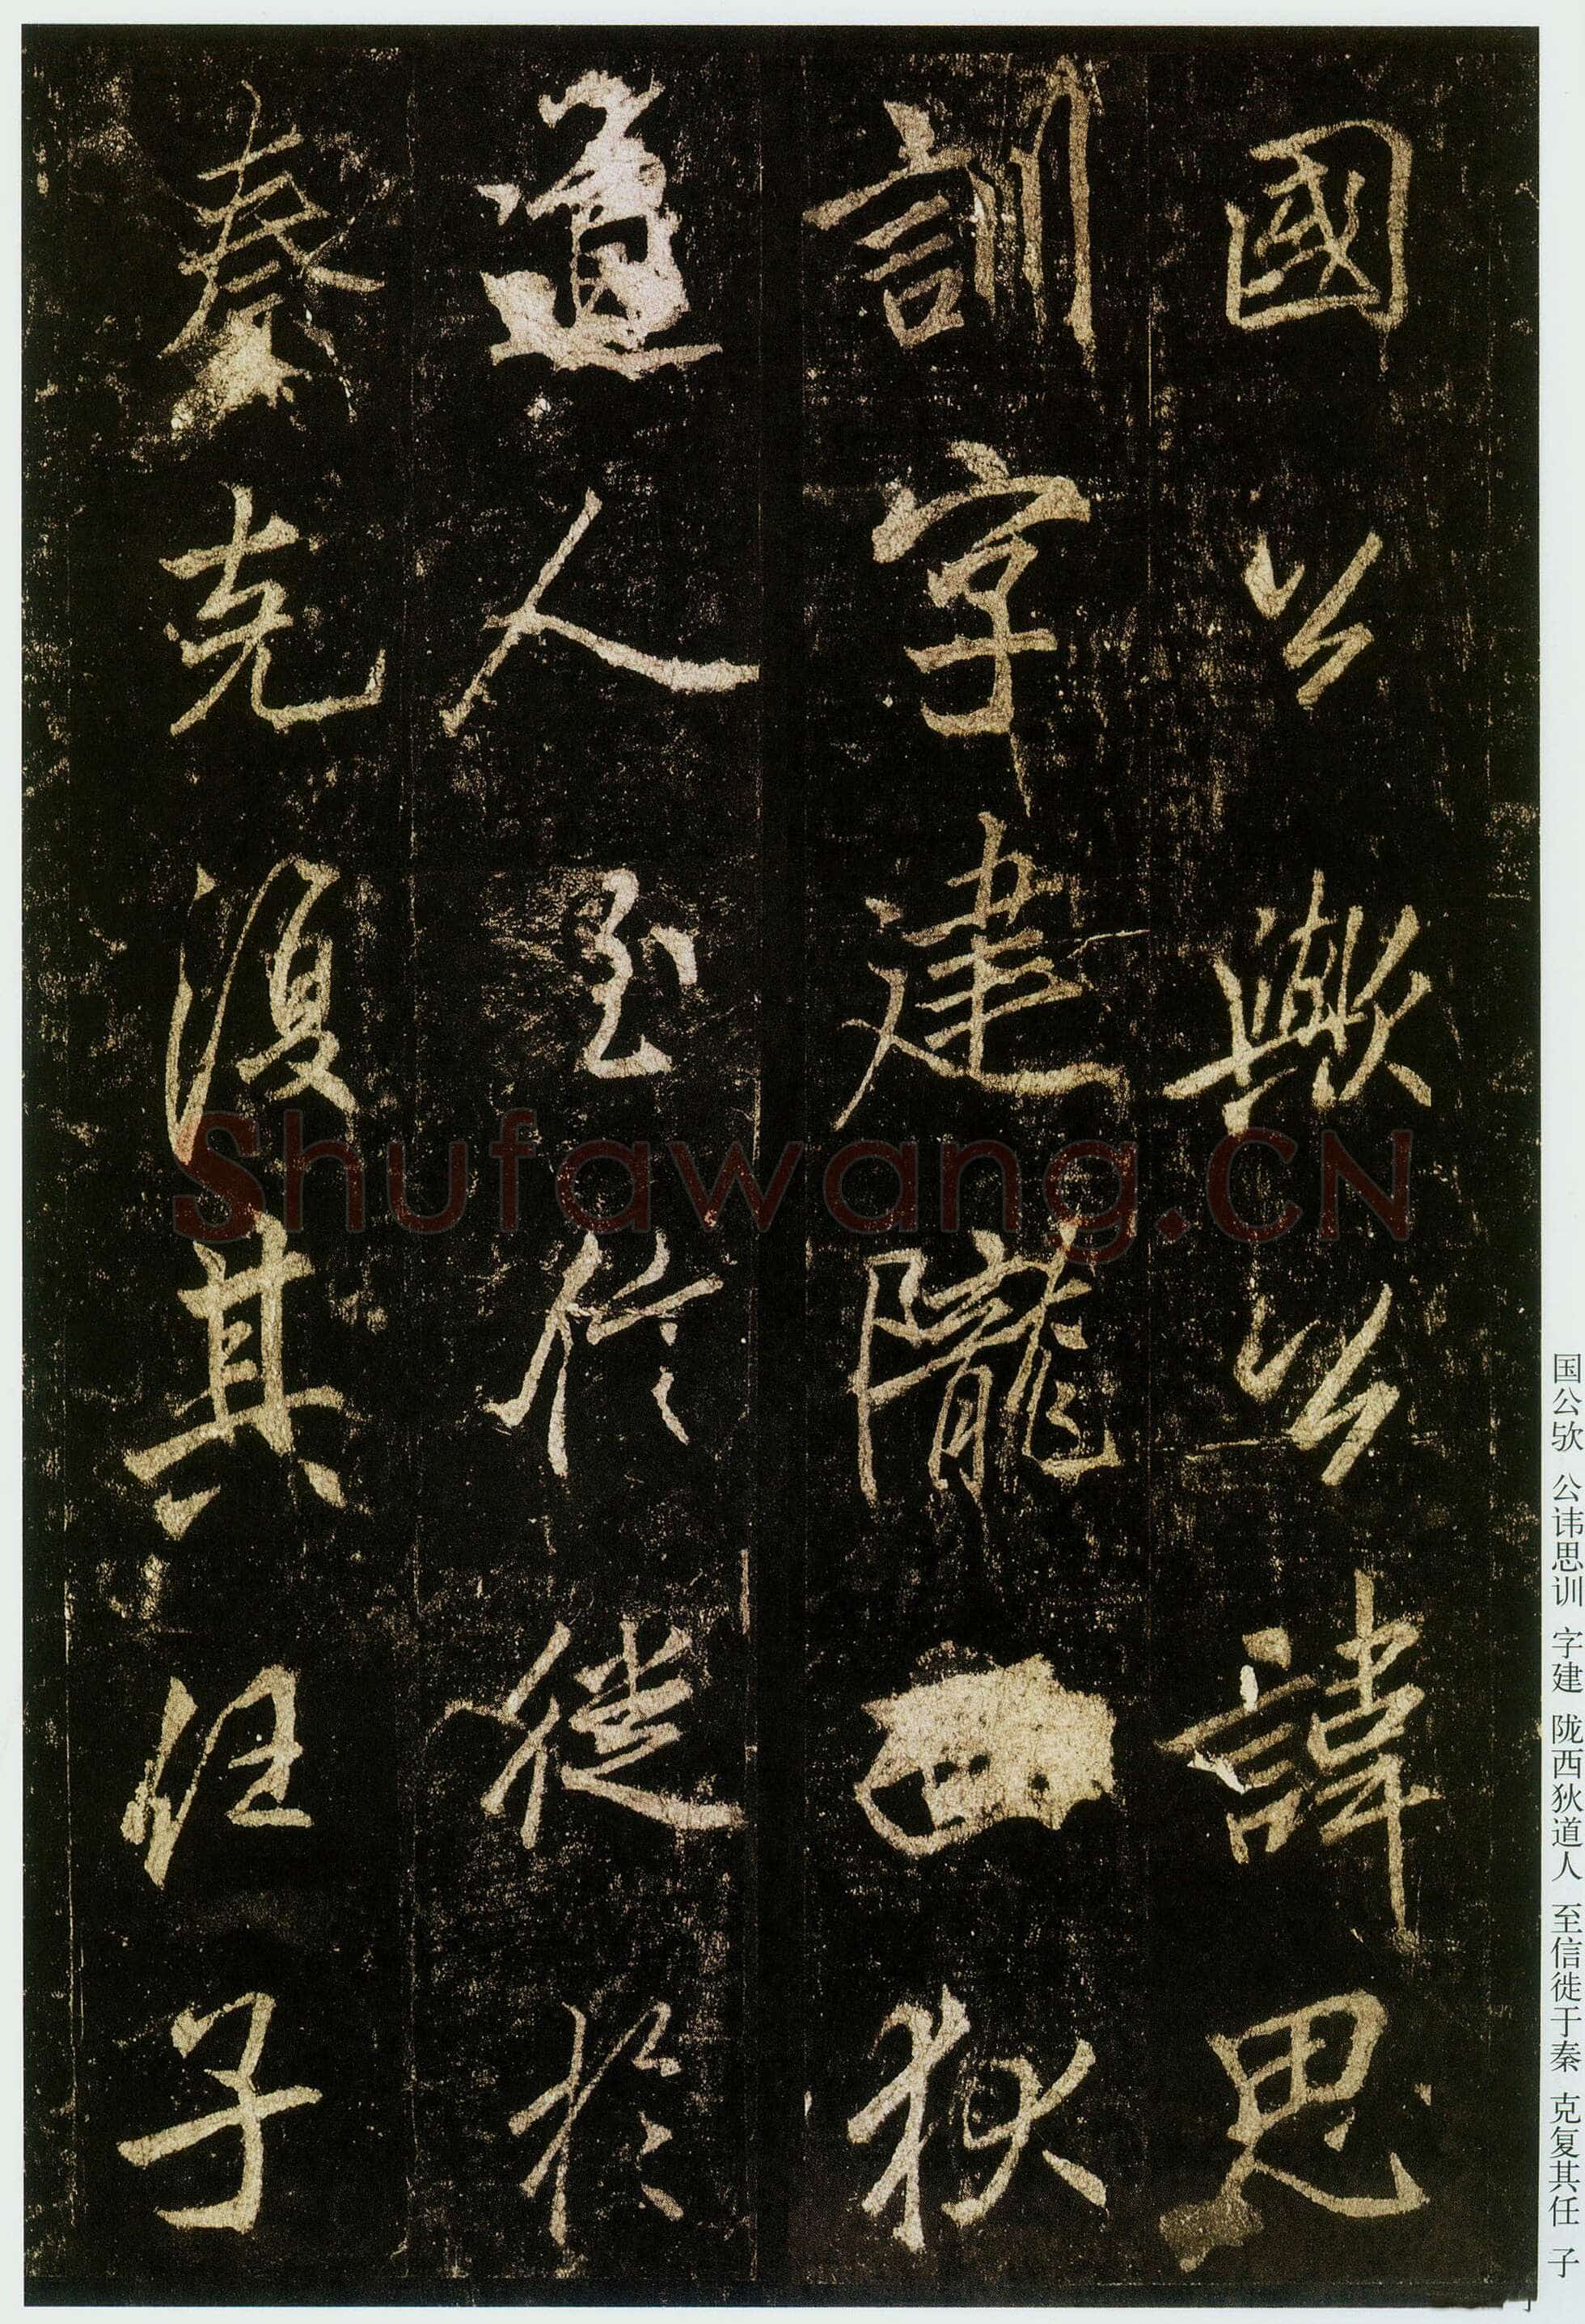 國公歟公諱思
訓字建隴西狄
道人至信徙於
秦克復其任子
国公欤 公讳思训 字建 陇西狄道人 至信徙于秦 克复其任 子
Shufawang.CN